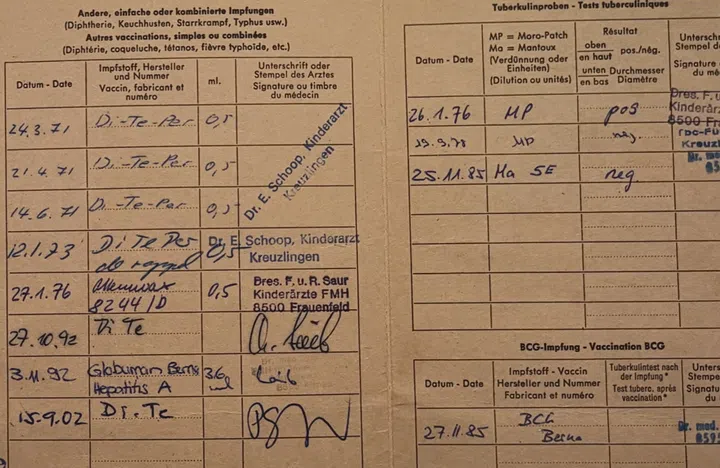 Andere, einfache oder kombinierte Impfungen
(Diphtherie, Keuchhusten, Starrkrampf, Typhus usw.)
Autres vaccinations, simples ou combinées
(Diphtérie, coqueluche, tétanos, fièvre typhoïde, etc.)
Datum - Date
Impfstoff, Hersteller
und Nummer
Vaccin, fabricant et
numéro
ml.
Unterschrift oder
Stempel des Arztes
Signature ou timbre
du médecin
24.3.71 Di-Te-Per 0,5
21.4.71 Di-Te-Per 0,5
14.6.71 Di-Te-Per 0,5
Dr. E. Schoop, Kinderarzt
Kreuzlingen
12.1.73 Di Te Per 0,5
Dr. E. Schoop, Kinderarzt
Kreuzlingen
27.1.76
8244/D 0,5
Bres. F. u. R. Saur
Kinderärzte FMH
8500 Frauenfeld
27.10.92 Di Te
3.11.92 Globuman Berna
Hepatitis A
ml
15.9.02 Di-Te
Tuberkulinproben - Tests tuberculiniques
Datum - Date
MP = Moro-Patch
Ma = Mantoux
(Verdünnung oder
Einheiten)
(Dilution ou unités)
Résultat
oben
en haut
pos./nég.
unten
en bas
Durchmesser
Diamètre
Unters
Stempel de
Signature o
du mé
26.1.76 MP pos
Bres. F. u
Kinderär
8500 F
MP neg
Kreuzl
25.11.85 Ma 5E neg
Dr. med
BCG-Impfung - Vaccination BCG
Datum - Date
Impfstoff - Vaccin
Hersteller und Nummer
Fabricant et numéro
Tuberkulintest nach
der Impfung*
Test tuberc. après
vaccination*
Unters
Stempel d
Signatu
du m
27.11.85 BCG
Berna
Dr. med.
8595